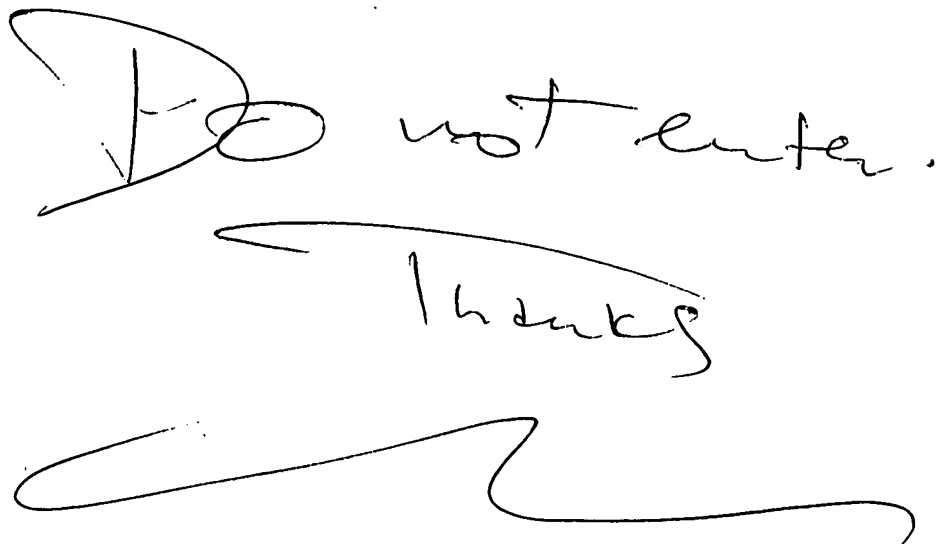 Do not enter.
Thanks